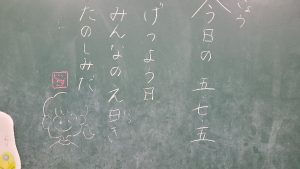 きょう
今日の五七五
げつよう日
みんなのえ曰き
たのしみだ